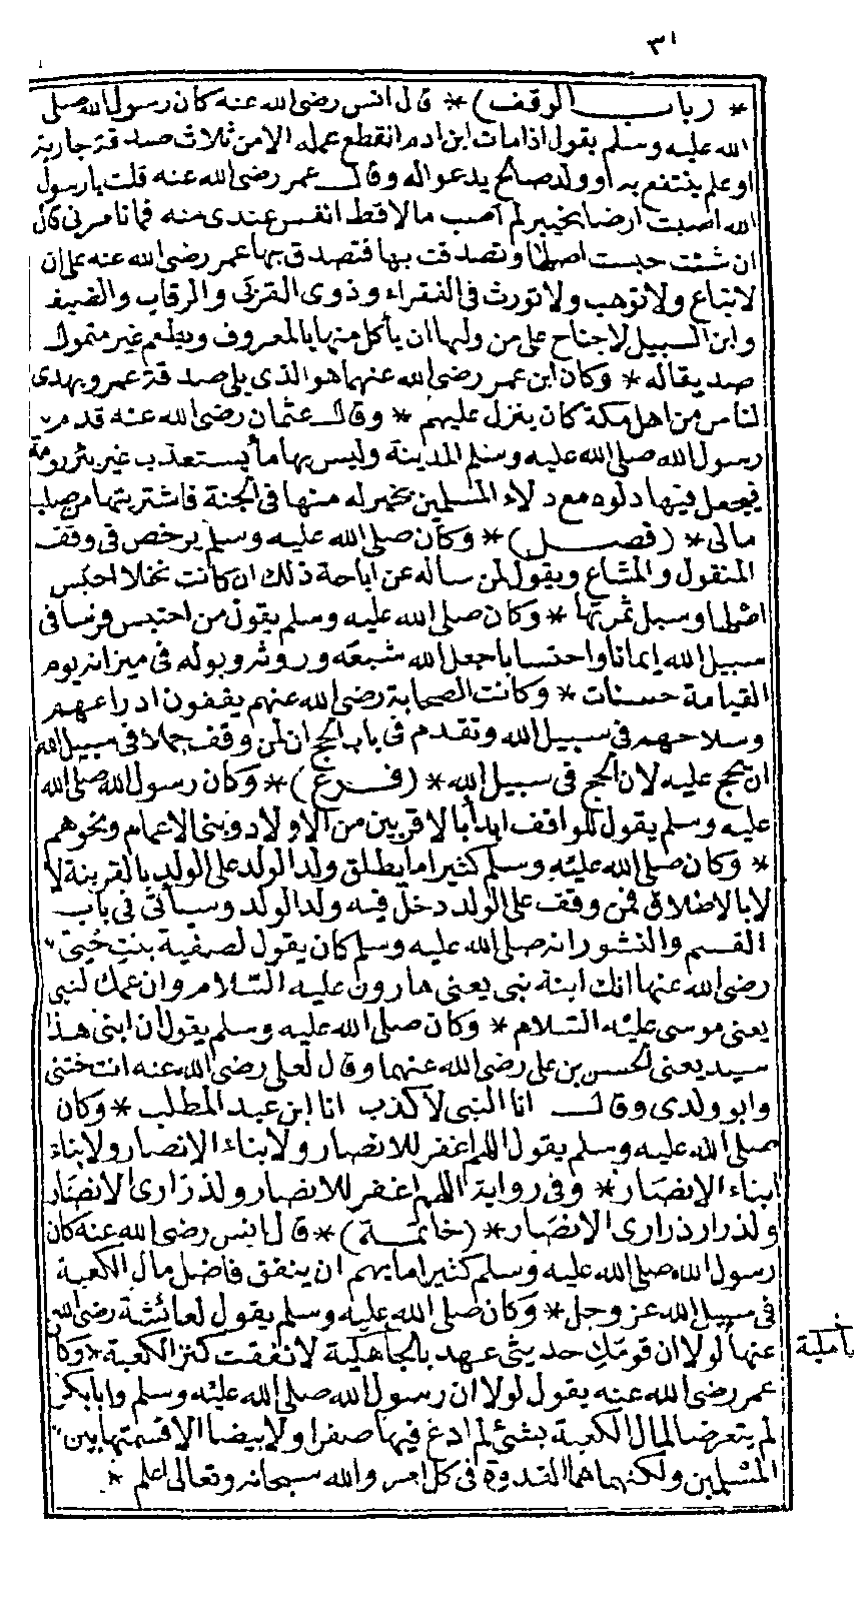 ٣١
* (باب الوقف) * قال انس رضى الله عنه كان رسول الله صلى
الله عليه وسلم يقول اذا مات ابن ادم انقطع عمله الا من ثلاث صدقة جارية
او علم ينتفع به او ولد صالح يدعو له وقال عمر رضى الله عنه قلت يا رسول
الله اصبت ارضا بخيبر لم اصب مالا قط انفس عندى منه فما تامرنى قال
ان شئت حبست اصلها وتصدقت بها فتصدق بها عمر رضى الله عنه على ان
لا تباع ولا توهب ولا تورث فى الفقراء وذوى القربى والرقاب والضيف
وابن السبيل لا جناح على من وليها ان يأكل منها بالمعروف ويطعم غير متمول
صديقا له * وكان ابن عمر رضى الله عنهما هو الذى يلى صدقة عمر ويهدى
لناس من اهل مكة كان ينزل عليهم * وقال عثمان رضى الله عنه قدم
رسول الله صلى الله عليه وسلم المدينة وليس بها ما يستعذب غير بئر رومة
فيجعل فيها دلوه مع دلاء المسلمين بخير له منها فى الجنة فاشتريتها من صلب
مالى * (فصل) * وكان صلى الله عليه وسلم يرخص فى وقف
المنقول والمشاع ويقول لمن ساله عن اباحة ذلك ان كانت نخلا احبس
اصلها وسبل ثمرتها * وكان صلى الله عليه وسلم يقول من احتبس فرسا فى
سبيل الله ايمانا واحتسابا جعل الله شبعه وروثه وبوله فى ميزانه يوم
القيامة حسنات * وكانت الصحابة رضى الله عنهم يقفون ادراعهم
وسلاحهم فى سبيل الله وتقدم فى باب الحج ان لمن وقف جملا فى سبيل الله
ان يحج عليه لان الحج فى سبيل الله * (فرع) * وكان رسول الله صلى الله
عليه وسلم يقول للواقف ابدأ بالاقربين من الاولاد وبنى الاعمام ونحوهم
* وكان صلى الله عليه وسلم كثيرا ما يطلق ولد الولد على الولد بالقرينة لا
لا بالاطلاق فمن وقف على الولد دخل فيه ولد الولد وسيأتى فى باب
القسم والنشوز انه صلى الله عليه وسلم كان يقول لصفية بنت حيى
رضى الله عنها انك ابنة نبى يعنى هارون عليه السلام وان عمك لنبى
يعنى موسى عليه السلام * وكان صلى الله عليه وسلم يقول ان ابنى هذا
سيد يعنى الحسن بن على رضى الله عنهما وقال لعلى رضى الله عنه انت ختنى
وابو ولدى وقال انا النبى لا كذب انا ابن عبد المطلب * وكان
صلى الله عليه وسلم يقول اللهم اغفر للانصار ولابناء الانصار ولابناء
ابناء الانصار * وفى رواية اللهم اغفر للانصار ولذرارى الانصار
ولذرار ذرارى الانصار * (خاتمة) * قال انس رضى الله عنه كان
رسول الله صلى الله عليه وسلم كثيرا ما يهم ان ينفق فاضل مال الكعبة
فى سبيل الله عز وجل * وكان صلى الله عليه وسلم يقول لعائشة رضى الله
عنها لولا ان قومك حديثى عهد بالجاهلية لانفقت كنز الكعبة * وكان
بأهلية
عمر رضى الله عنه يقول لولا ان رسول الله صلى الله عليه وسلم وابا بكر
لم يتعرضا لمال الكعبة بشئ لم ادع فيها صفرا ولا بيضا الا قسمتها بين
المسلمين ولكنهما هما القدوة فى كل امر والله سبحانه وتعالى اعلم *